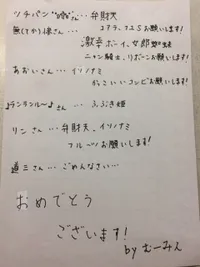 ツチパン"��"さん…弁財天
無(すか)様さん… コアラ、エエSお願いします!
激辛ボーイ、女郎蜘蛛
ニャン騎士、リボーンお願いします!
あおいさん…イソノナミ
かっこいいコンビお願いします!
♪ランランルー♪さん… ふぶき姫
リンさん…弁財天、イソノナミ
フルーツお願いします!
道三さん…ごめんなさい…
おめでとう
ございます!
by むーみん